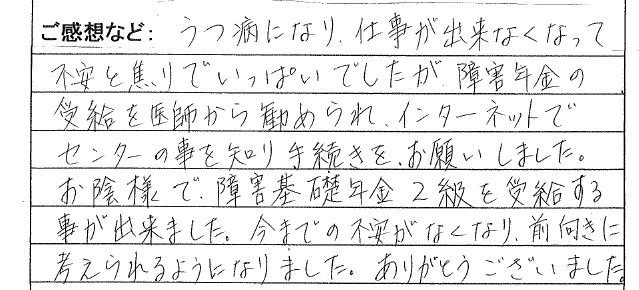 ご感想など: うつ病になり、仕事が出来なくなって
不安と焦りでいっぱいでしたが、障害年金の
受給を医師から勧められ、インターネットで
センターの事を知り手続きを、お願いしました。
お陰様で、障害基礎年金2級を受給する
事が出来ました。今までの不安がなくなり、前向きに
考えられるようになりました。ありがとうございました。